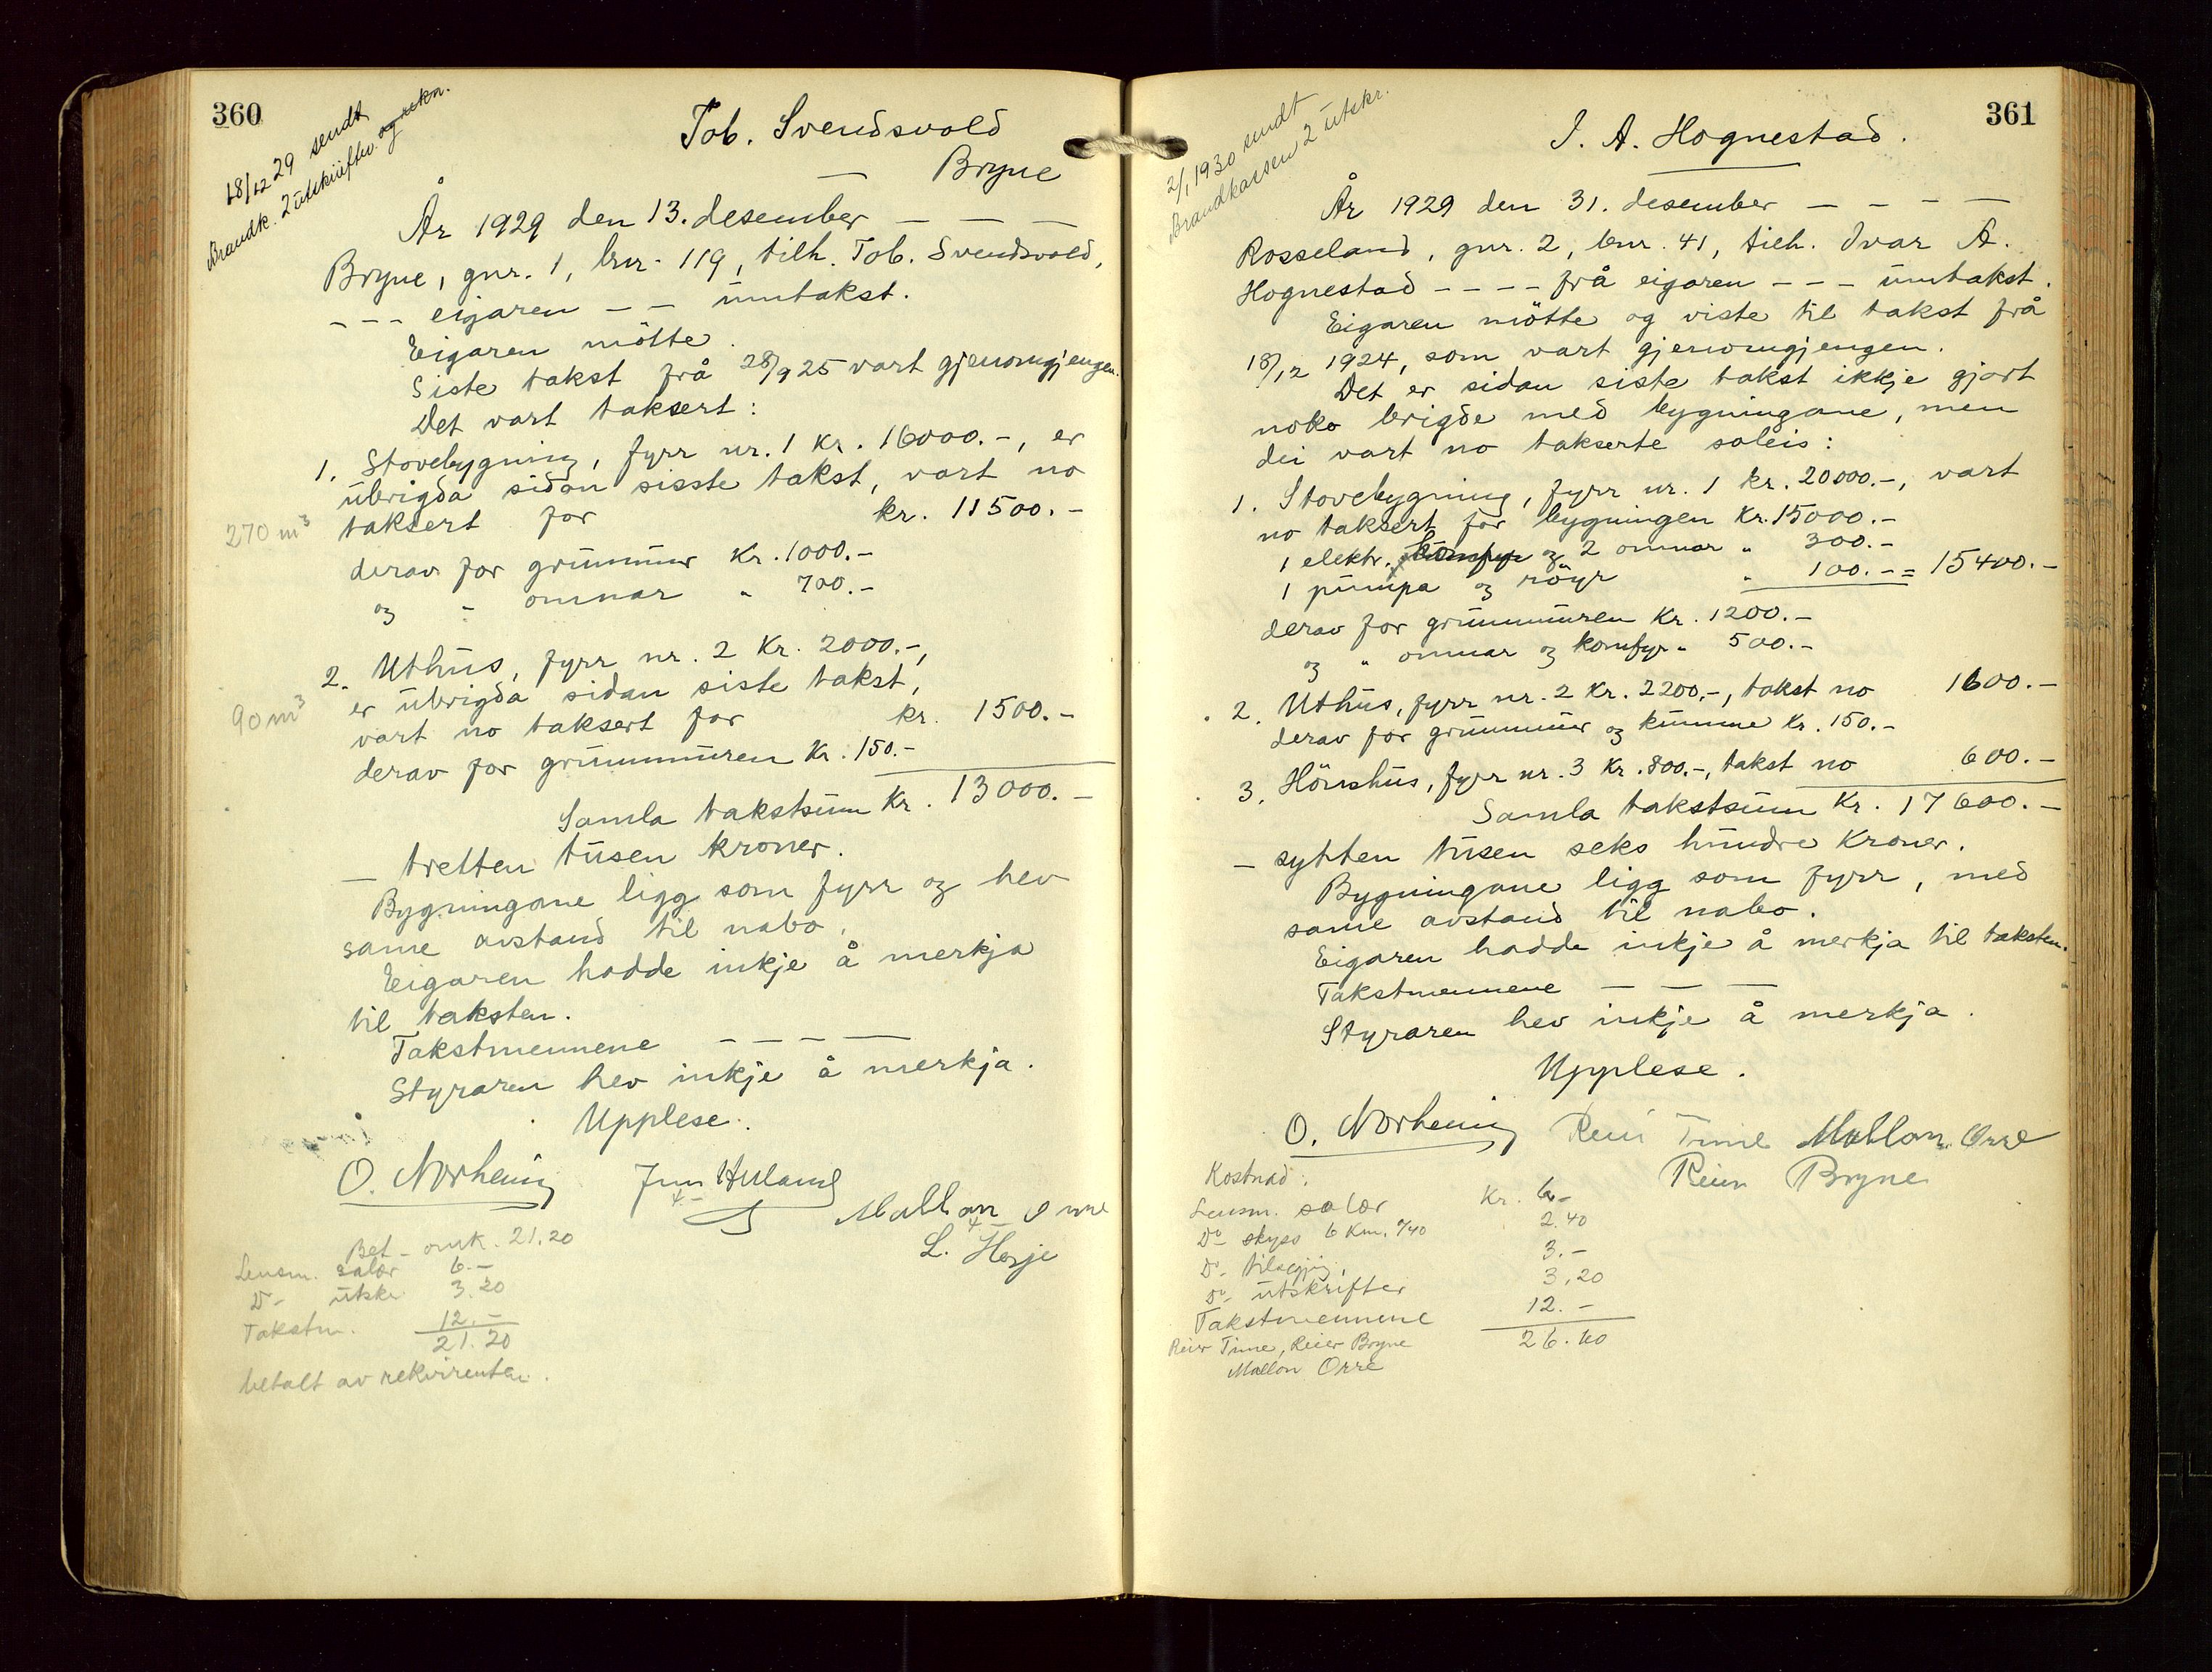 360
18/12 29 sendt
Brandk. 2 utskrifter og rekn.
Tob. Svendsvold
Bryne
År 1929 den 13. desember — — —
Bryne, gnr. 1, bnr. 119, tilh. Tob. Svendsvold,
- - - eigaren - - umtakst.
Eigaren mötte.
Siste takst frå 28/9 25 vart gjenomgjengen.
Det vart taksert:
1. Stovebygning, fyrr nr. 1 kr. 16000.-, er
ubrigda sidan sisste takst, vart no
270 m³ taksert for kr. 11500.-
derav for grunnmur kr. 1000.-
og - omnar " 700.-
2. Uthus, fyrr nr. 2 kr. 2000.-,
er ubrigda sidan siste takst,
90 m³ vart no taksert for kr. 1500.-
derav for grunnmuren kr. 150.-
Samla takstsum kr. 13000.-
— tretten tusen kroner.
Bygningane ligg som fyrr og hev
same avstand til nabo.
Eigaren hadde inkje å merkja
til taksten.
Takstmennene - - - —
Styraren hev inkje å merkja.
Upplese.
O. Norheim
Mallon Orre
L. Herje
Bet - omk. 21.20
Lensm. salær 6.-
Do- utskr. 3.20
Takstm. 12.-
21.20
betalt av rekvirenten.
361
2/1 1930 sendt
Brandkassen 2 utskr.
I. A. Hognestad.
År 1929 den 31. desember — — — —
Rosseland, gnr. 2, bnr. 41, tilh. Ivar A.
Hognestad - - - - frå eigaren - - - umtakst.
Eigaren mötte og viste til takst frå
18/12 1924, som vart gjenomgjengen.
Det er sidan siste takst ikkje gjort
noko brigde med bygningane, men
dei vart no takserte soleis:
1. Stovebygning, fyrr nr. 1 kr. 20000.-, vart
no taksert for bygningen kr. 15000.-
1 elektr. komfyr og 2 omnar " 300.-
1 pumpa og röyr " 100.- = 15400.-
derav for grunnmuren kr. 1200.-
og " omnar og komfyr " 500.-
2. Uthus, fyrr nr. 2 kr. 2200,-, takst no 1600.-
derav for grunnmur og kumme kr. 150.-
3. Hönshus, fyrr nr. 3 kr. 800.-, takst no 600.-
Samla takstsum kr. 17600.-
— sytten tusen seks hundre kroner.
Bygningane ligg som fyrr, med
same avstand til nabo.
Eigaren hadde inkje å merkja til taksten.
Takstmennene — — —
Styraren hev inkje å merkja.
Upplese.
O. Norheim Reier Time Mallon Orre
Reier Bryne
Kostnad:
Lensm. salær kr. 6.-
Do- skyss 6 km. à/40 2.40
Do- tilsegjing, 3.-
Do- utskrifter 3.20
Takstmennene 12.-
Reier Time, Reier Bryne 26.60
Mallon Orre